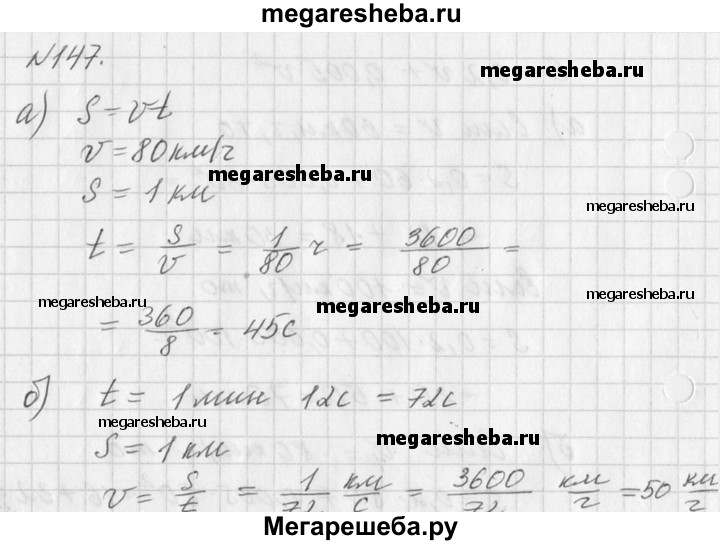 megaresheba.ru
N147.
megaresheba.ru
а) S = vt
v = 80 км/ч
megaresheba.ru
S = 1 км
megaresheba.ru
t = S/v = 1/80 ч = 3600/80 =
megaresheba.ru
megaresheba.ru
megaresheba.ru
= 360/8 = 45с
б) t = 1 мин 12с = 72с
megaresheba.ru
megaresheba.ru
S = 1 км
megaresheba.ru
v = S/t = 1/72 км/с = 3600/72 км/г = 50 км/г
Мегарешеба.ру